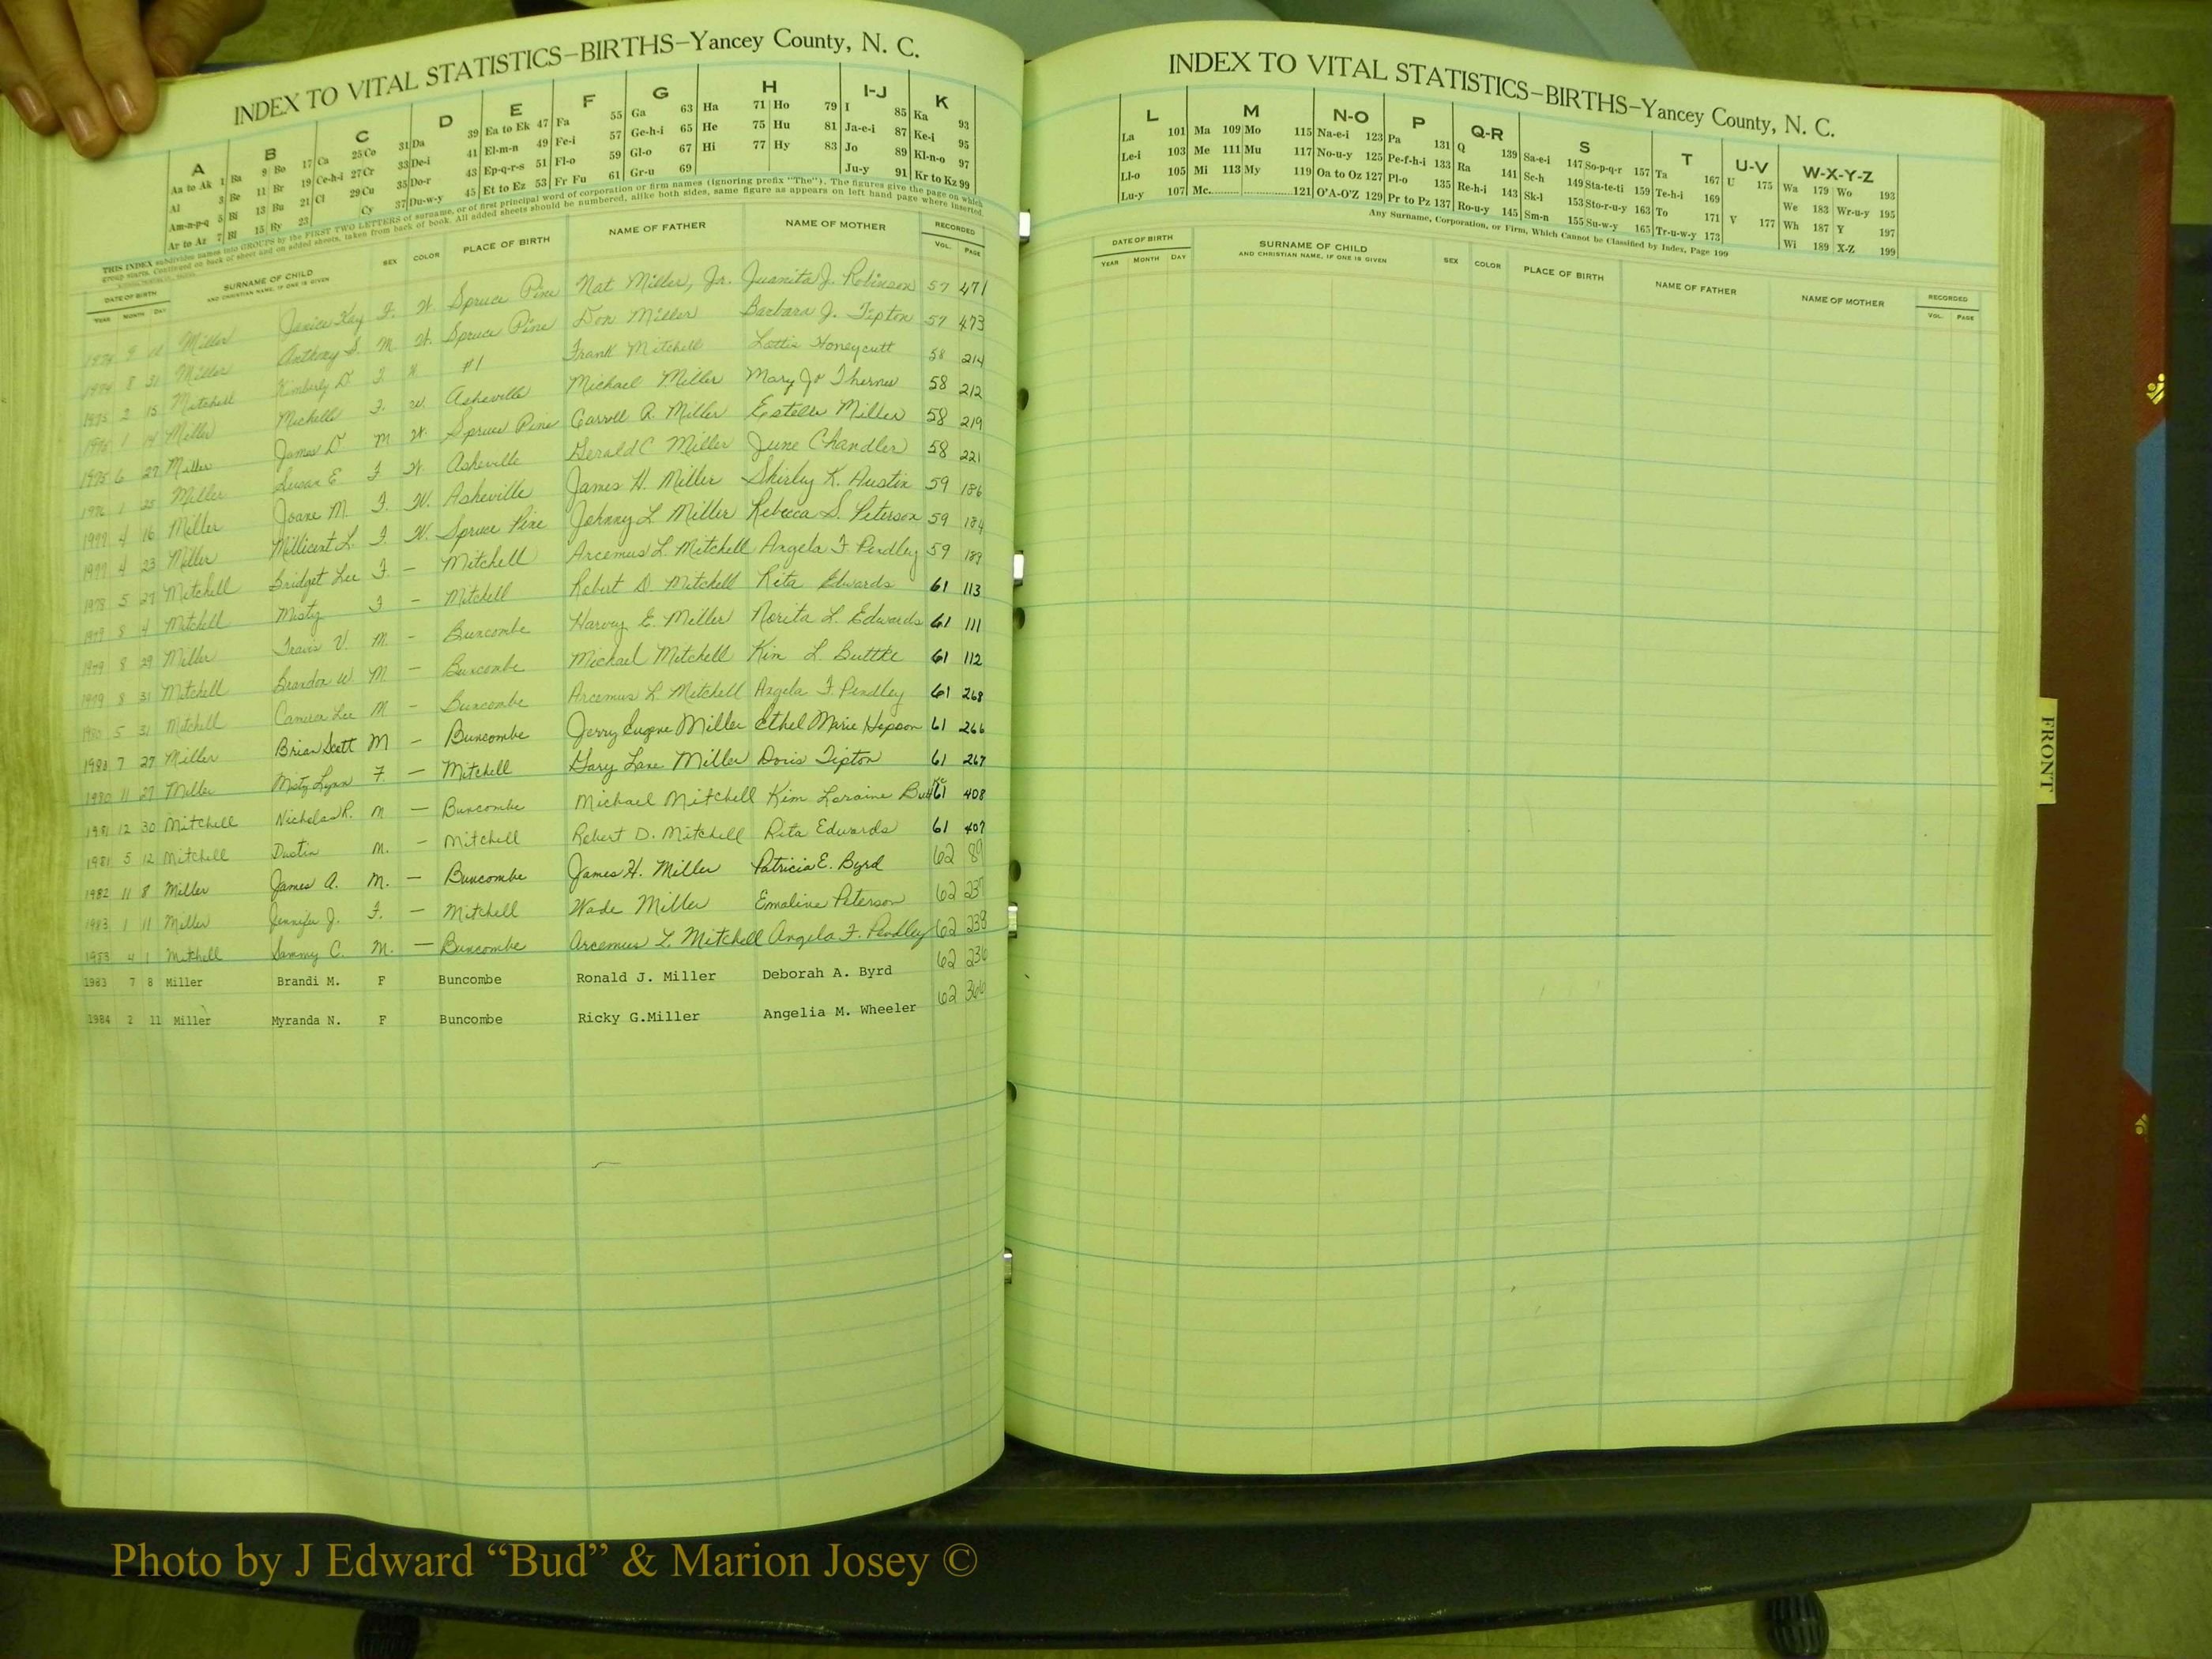 INDEX TO VITAL STATISTICS–BIRTHS–Yancey County, N. C.
A B C D E F G H I-J K
Aa to Ak 1 Ba 9 Bo 17 Ca 25 Co 31 Da 39 Ea to Ek 47 Fa 55 Ga 63 Ha 71 Ho 79 I 85 Ka 93
Al 3 Be 11 Br 19 Ce-h-i 27 Cr 33 De-i 41 El-m-n 49 Fe-i 57 Ge-h-i 65 He 75 Hu 81 Ja-e-i 87 Ke-i 95
Am-n-p-q 5 Bi 13 Bu 21 Cl 29 Cu 35 Do-r 43 Ep-q-r-s 51 Fl-o 59 Gl-o 67 Hi 77 Hy 83 Jo 89 Kl-n-o 97
Ar to Az 7 Bl 15 By 23 Cy 37 Du-w-y 45 Et to Ez 53 Fr Fu 61 Gr-u 69 Ju-y 91 Kr to Kz 99
THIS INDEX subdivides names into GROUPS by the FIRST TWO LETTERS of surname, or of first principal word of corporation or firm names (ignoring prefix "The"). The figures give the page on which
group starts. Continued on back of sheet and on added sheets, taken from back of book. All added sheets should be numbered, alike both sides, same figure as appears on left hand page where inserted.
DATE OF BIRTH SURNAME OF CHILD SEX COLOR PLACE OF BIRTH NAME OF FATHER NAME OF MOTHER RECORDED
YEAR MONTH DAY AND CHRISTIAN NAME, IF ONE IS GIVEN VOL. PAGE
1974 9 Miller Janice Kay F. W. Spruce Pine Nat Miller, Jr. Juanita J. Robinson 57 471
1974 8 31 Miller Anthony S. M W. Spruce Pine Don Miller Barbara J. Tipton 57 473
1975 2 15 Mitchell Kimberly D F. W #1 Frank Mitchell Lottie Honeycutt 58 214
1 14 Miller Michelle F. W. Asheville Michael Miller Mary Jo 58 212
1975 6 27 Miller James D M W. Spruce Pine Carroll R. Miller Estelle Miller 58 219
1976 1 25 Miller Susan E F W. Asheville Gerald C Miller June Chandler 58 221
1977 4 16 Miller Joane M. F. W. Asheville James H. Miller Shirley K. Austin 59 186
1977 4 23 Miller Millicent L. F. W. Spruce Pine Johnny L Miller Rebecca S. Peterson 59 184
1978 5 27 Mitchell Bridget Lee F. – Mitchell Arcemus L. Mitchell Angela F. Pendley 59 189
1979 8 4 Mitchell Misty F – Mitchell Robert D. Mitchell Rita Edwards 61 113
1979 8 29 Miller Travis V. M. – Buncombe Harvey E. Miller Norita L. Edwards 61 111
1979 8 31 Mitchell Brandon W M – Buncombe Michael Mitchell Kim L. Buttke 61 112
1980 5 31 Mitchell Cameron Lee M – Buncombe Arcemus L. Mitchell Angela F. Pendley 61 268
1980 7 27 Miller Brian Scott M – Buncombe Jerry Eugene Miller Ethel Marie Hopson 61 266
1980 11 27 Miller Misty Lynn F. – Mitchell Gary Lane Miller Doris Tipton 61 267
1981 12 30 Mitchell Nicholas R. M – Buncombe Michael Mitchell Kim Loraine Buttke 61 408
1981 5 12 Mitchell Dustin M. – Mitchell Robert D. Mitchell Rita Edwards 61 407
1982 11 8 Miller James A. M. – Buncombe James H. Miller Patricia E. Byrd 62 89
1983 1 11 Miller Jennifer J. F. – Mitchell Wade Miller Emaline Peterson 62 237
1983 4 1 Mitchell Sammy C. M. – Buncombe Arcemus L. Mitchell Angela F. Pendley 62 238
1983 7 8 Miller Brandi M. F Buncombe Ronald J. Miller Deborah A. Byrd 62 236
1984 2 11 Miller Myranda N. F Buncombe Ricky G.Miller Angelia M. Wheeler 62 366
INDEX TO VITAL STATISTICS–BIRTHS–Yancey County, N. C.
L M N-O P Q-R S T U-V W-X-Y-Z
La 101 Ma 109 Mo 115 Na-e-i 123 Pa 131 Q 139 Sa-e-i 147 So-p-q-r 157 Ta 167 U 175 Wa 179 Wo 193
Le-i 103 Me 111 Mu 117 No-u-y 125 Pe-f-h-i 133 Ra 141 Sc-h 149 Sta-te-ti 159 Te-h-i 169 We 183 Wr-u-y 195
Ll-o 105 Mi 113 My 119 Oa to Oz 127 Pl-o 135 Re-h-i 143 Sk-l 153 Sto-r-u-y 163 To 171 V 177 Wh 187 Y 197
Lu-y 107 Mc. 121 O'A-O'Z 129 Pr to Pz 137 Ro-u-y 145 Sm-n 155 Su-w-y 165 Tr-u-w-y 173 Wi 189 X-Z 199
Any Surname, Corporation, or Firm, Which Cannot be Classified by Index, Page 199
DATE OF BIRTH SURNAME OF CHILD SEX COLOR PLACE OF BIRTH NAME OF FATHER NAME OF MOTHER RECORDED
YEAR MONTH DAY AND CHRISTIAN NAME, IF ONE IS GIVEN VOL. PAGE
FRONT
Photo by J Edward “Bud” & Marion Josey ©